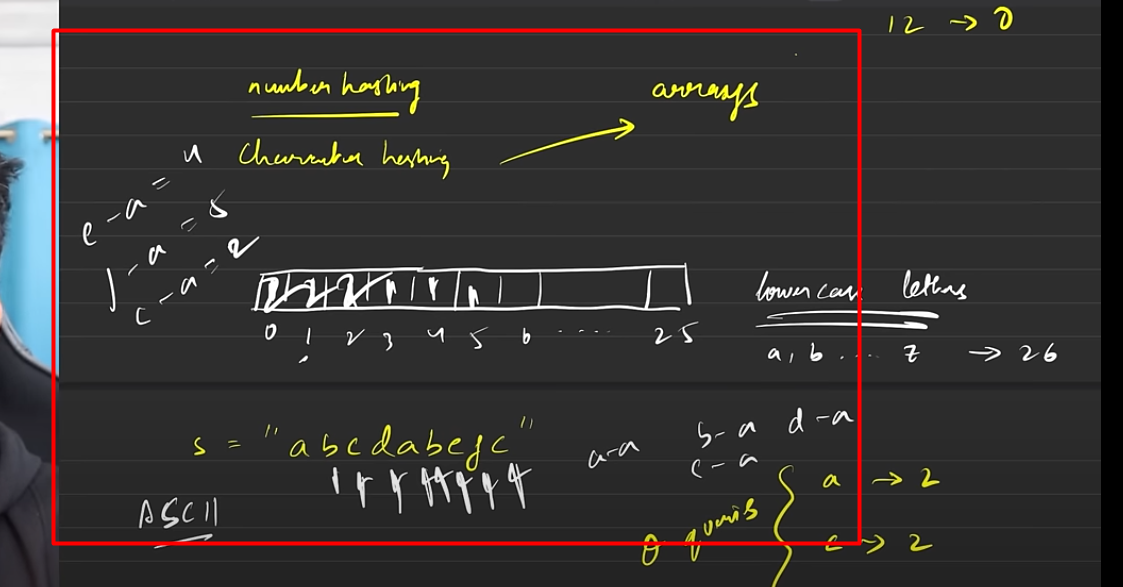 12 → 0
number hashing
arrays
character hashing
e - a = 4
f - a = 5
c - a = 2
0 1 2 3 4 5 6 ..... 25
lower case letters
a, b .... z → 26
s = "abcdabefc"
a-a b-a d-a
c-a
ASCII
a → 2
Q queries
c → 2